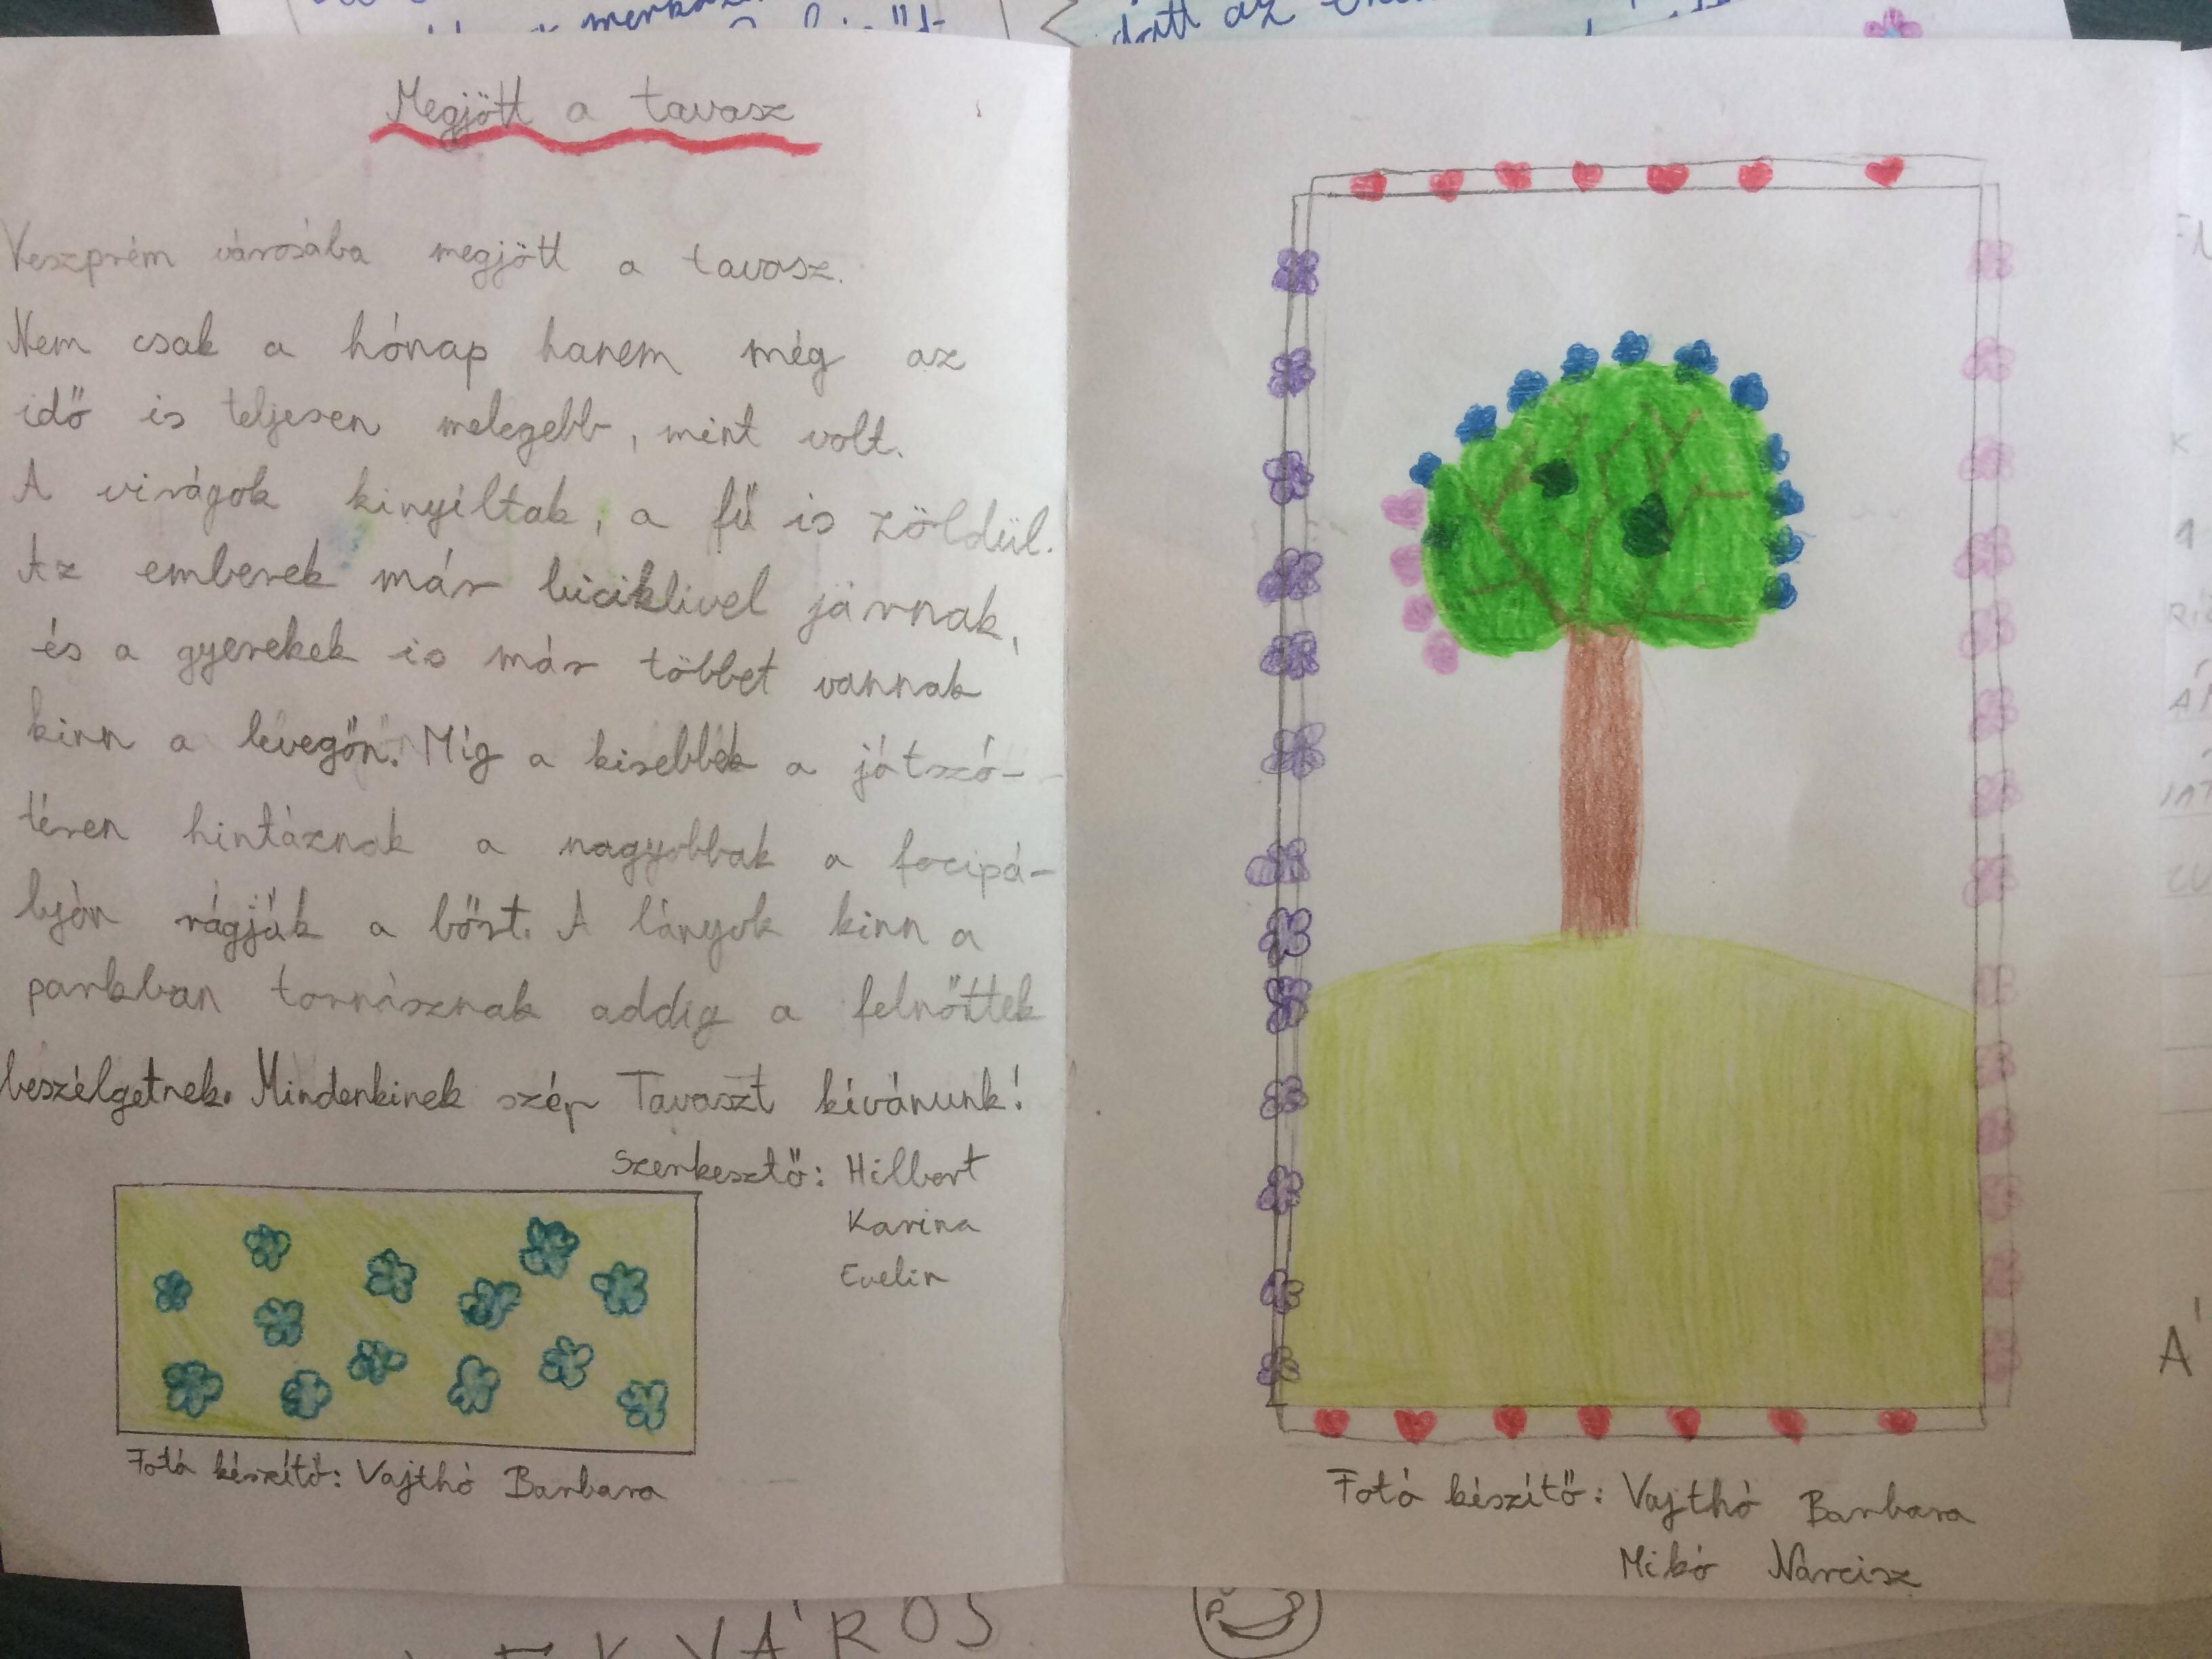 Megjött a tavasz
Veszprém városába megjött a tavasz.
Nem csak a hónap hanem még az
idő is teljesen melegebb, mint volt.
A virágok kinyíltak, a fű is zöldül.
Az emberek már biciklivel járnak,
és a gyerekek is már többet vannak
kinn a levegőn. Míg a kisebbek a játszó-
téren hintáznak a nagyobbak a focipá-
lyán rágják a bőrt. A lányok kinn a
parkban tornásznak addig a felnőttek
beszélgetnek. Mindenkinek szép Tavaszt kívánunk!
Szerkesztő: Hilbert
Karina
Evelin
Fotó készítő: Vajthó Barbara
Fotó készítő: Vajthó Barbara
Mikó Nárcisz
VÁROS